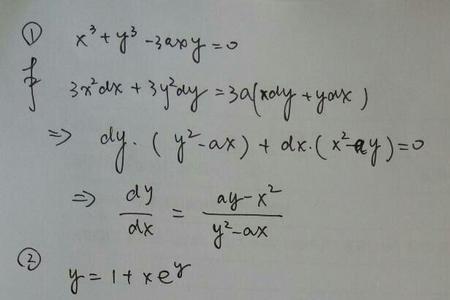 ① x³ + y³ - 3axy = 0
3x²dx + 3y²dy = 3a(xdy + ydx)
⇒ dy·(y² - ax) + dx·(x² - ay) = 0
⇒ dy/dx = (ay - x²)/(y² - ax)
② y = 1 + xeʸ